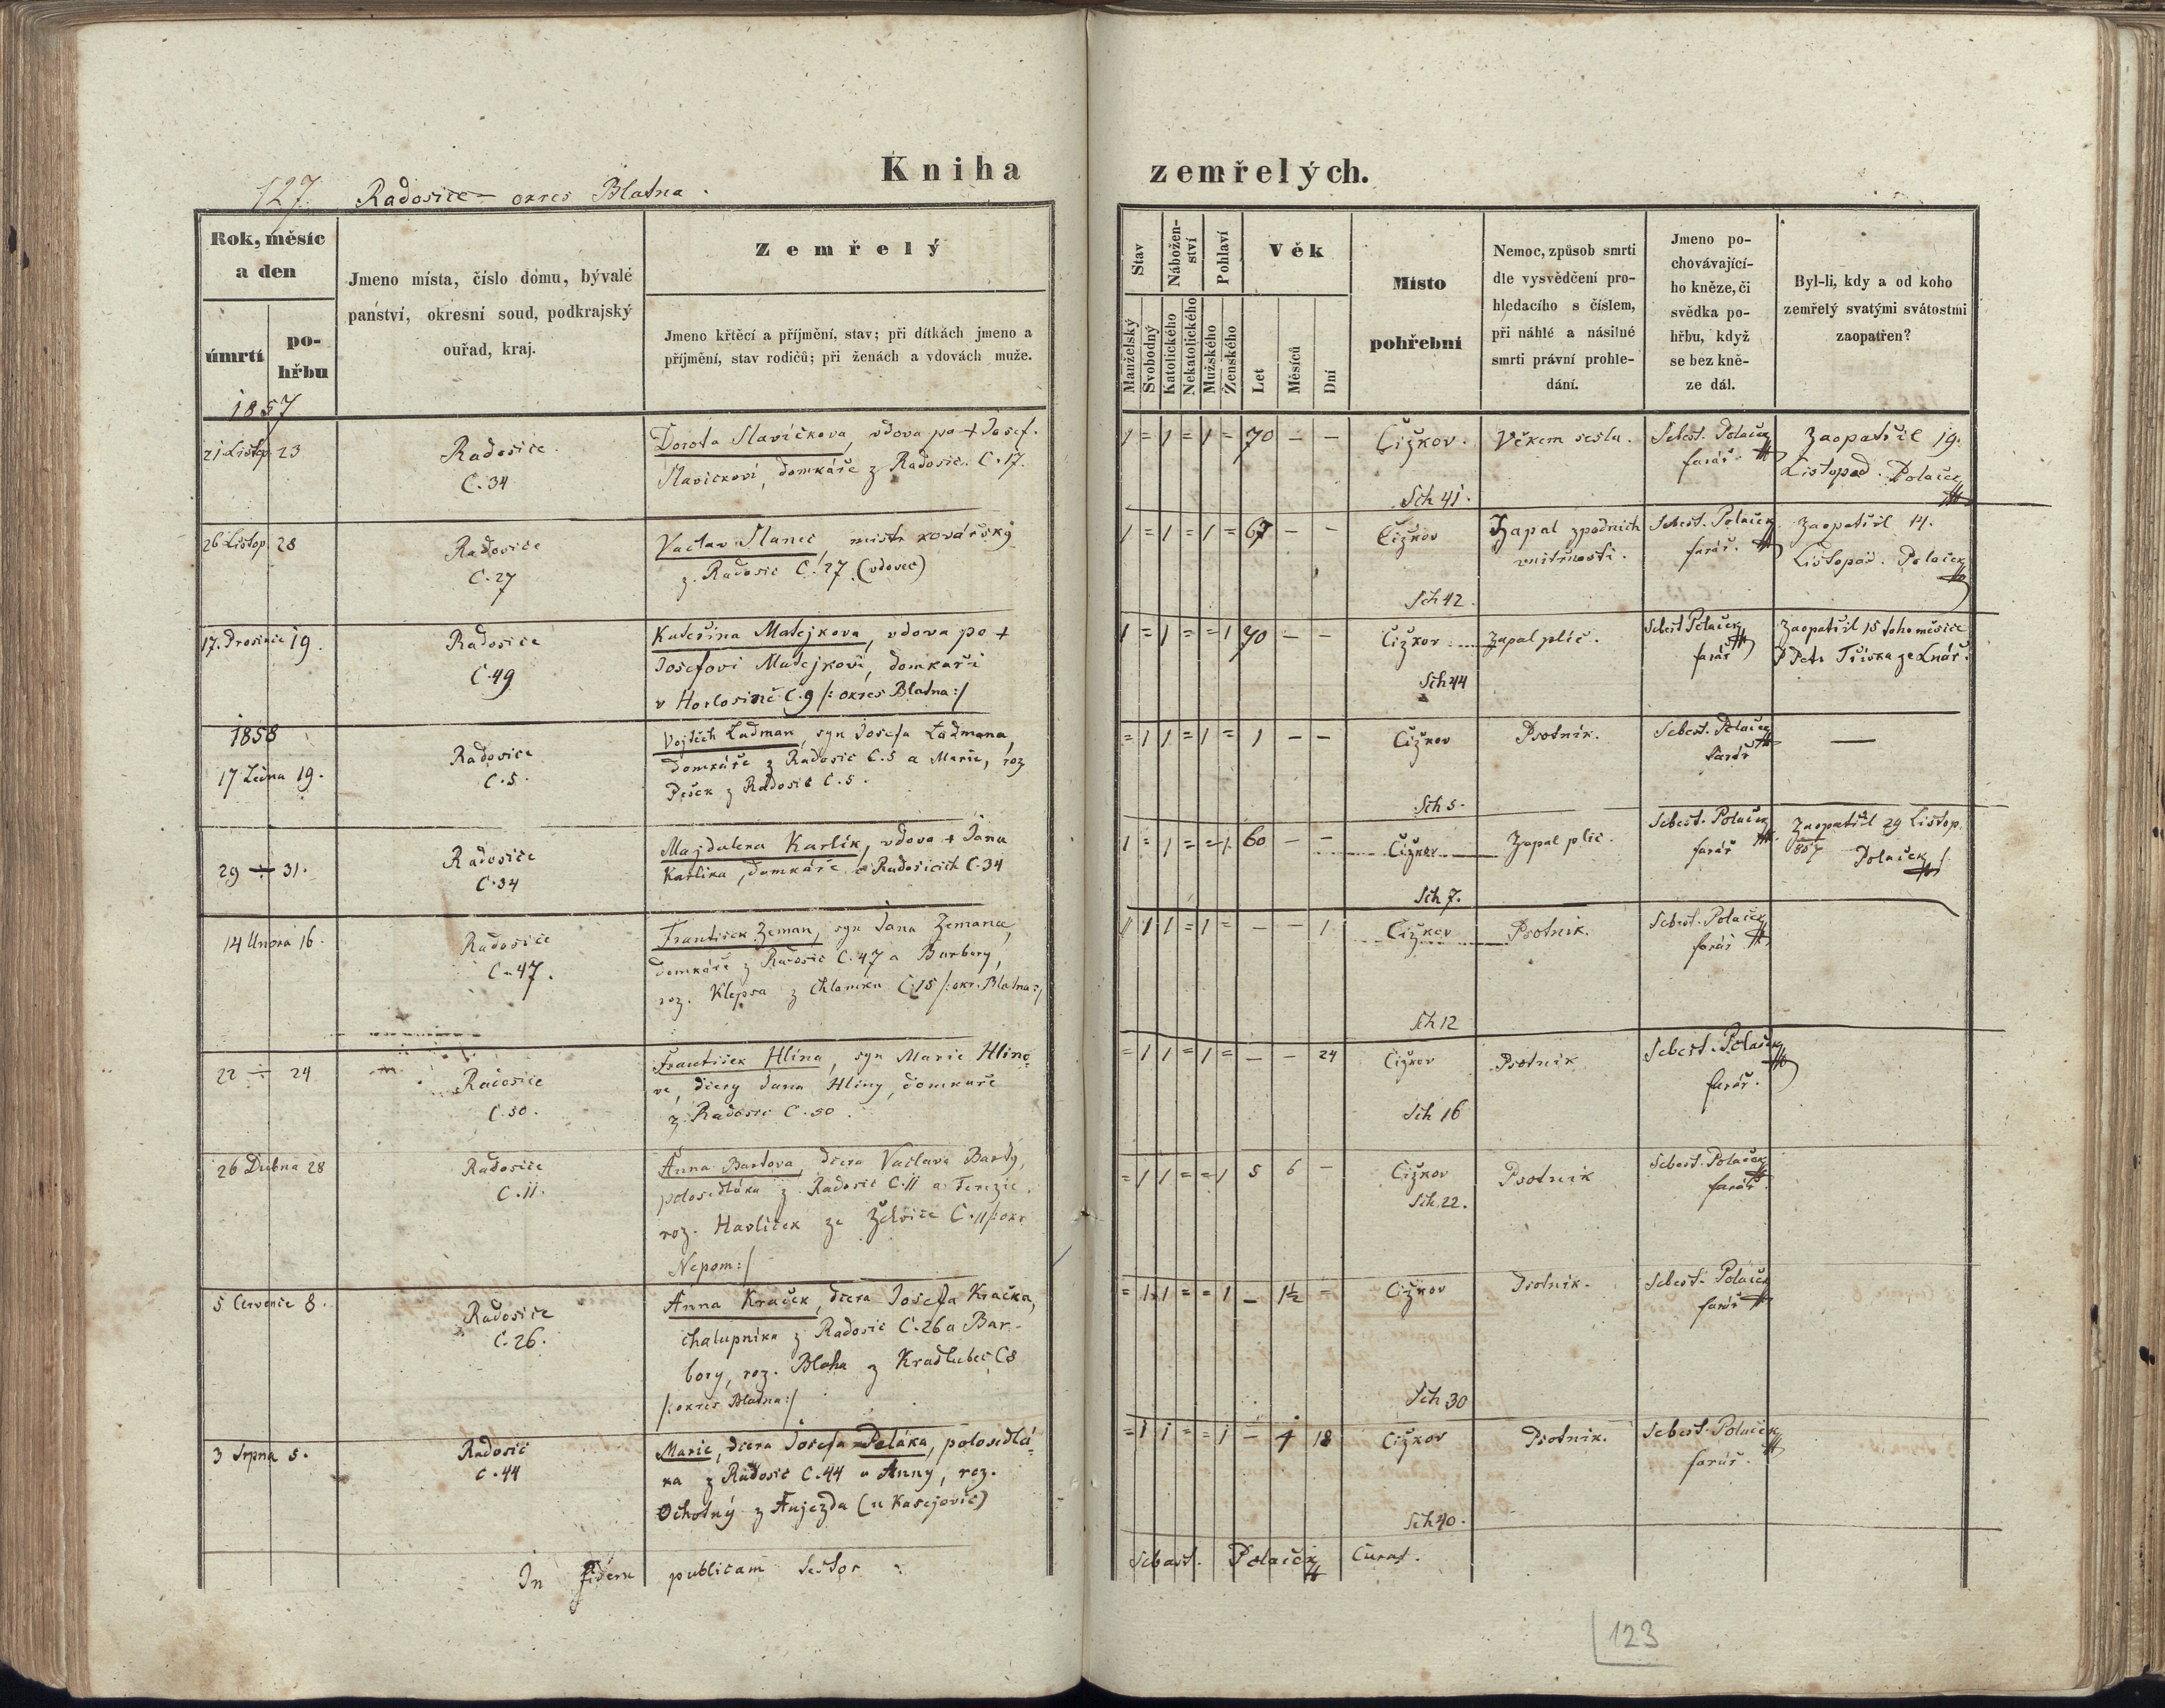 Kniha zemřelých.
127. Radosice – okres Blatna.
Rok, měsíc a den
úmrtí
po-
hřbu
Jmeno místa, číslo domu, bývalé
panství, okresní soud, podkrajský
ouřad, kraj.
Zemřelý
Jmeno křtěcí a příjmění, stav; při dítkách jmeno a
příjmění, stav rodičů; při ženách a vdovách muže.
Stav
Manželský
Svobodný
Nábožen-
ství
Katolického
Nekatolického
Pohlaví
Mužského
Ženského
Věk
Let
Měsíců
Dní
Místo
pohřební
Nemoc, způsob smrti
dle vysvědčení pro-
hledacího s číslem,
při náhlé a násilné
smrti právní prohle-
dání.
Jmeno po-
chovávající-
ho kněze, či
svědka po-
hřbu, když
se bez kně-
ze dál.
Byl-li, kdy a od koho
zemřelý svatými svátostmi
zaopatřen?
1857
21 Listop. 23
Radosice
C. 34
Dorota Slavičkova, vdova po + Josef.
Slavičkovi, domkáře z Radosic. C. 17.
1 = 1 = 1 = 70 – –
Čižkov.
Sch 41.
Věkem sešla.
Sebest. Polaček
farář.
Zaopatřil 19.
Listopad. Polaček
26 Listop. 28
Radosice
C. 27
Vaclav Slanec, mistr kovářský
z. Radosic C. 27 (vdovec)
1 = 1 = 1 = 67 – –
Čižkov
Sch 42.
Zapal zpodnich
vnitřnosti.
Sebest. Polaček
farář.
Zaopatřil 14.
Listopad. Polaček
17. Prosince 19.
Radosice
C. 49
Kateřina Matejkova, vdova po +
Josefovi Matejkovi, domkaři
v Horlosinč C. 9 /: okres Blatna :/
1 = 1 = = 1 70 – –
Čižkov
Sch 44
Zapal plic.
Sebest Polaček
farář
Zaopatřil 15 toho měsice
P Petr Tříska ze Lnář.
1858
17 Ledna 19.
Radosice
C. 5.
Vojtěch Ladman, syn Josefa Ladmana,
domkáře z Radosic C. 5 a Marie, roz
Pešek z Radosic C. 5.
= 1 1 = 1 = 1 – –
Čižkov
Sch 5.
Psotnik.
Sebest. Polaček
farář
–
29 ÷ 31.
Radosice
C. 34
Majdalena Karlik, vdova + Jana
Karlika, domkáře z Radosicich C. 34
1 = 1 = = 1 60 – –
Čižkov
Sch 7.
Zapal plic.
Sebest. Polaček
farář
Zaopatřil 29 Listop.
857 Polaček
14 Unora 16.
Radosice
C. 47.
František Zeman, syn Jana Zemana,
domkáře z Radosic C. 47 a Barbory,
roz. Klepsa z Chlomku C. 15 /: okr. Blatna :/
1 1 = 1 = – – 1
Čižkov
Sch 12
Psotnik.
Sebest. Polaček
farář
22 ÷ 24
Radosice
C. 50.
František Hlina, syn Marie Hlino-
ve, dcery Jana Hliny, domkaře
z Radosic C. 50.
= 1 1 = 1 = – – 24
Čižkov
Sch 16
Psotnik
Sebest. Polaček
farář.
26 Dubna 28
Radosice
C. 11.
Anna Bartova, dcera Vaclava Barty,
polosedláka z Radosic C. 11 a Terezie,
roz. Havliček ze Želvice C. 11 /: okr
Nepom :/
= 1 1 = = 1 5 6 –
Čižkov
Sch. 22.
Psotnik
Sebest. Polaček
farář.
5 Červenče 8.
Radosice
C. 26.
Anna Kraček, dcera Josefa Kračka,
chalupnika z Radosic C. 26 a Bar-
bory, roz. Blaha z Kradlubec C 8
/: okres Blatna :/
= 1 1 = = 1 – 1½ –
Čižkov
Sch 30
Psotnik.
Sebest. Polaček
farář
3 Srpna 5.
Radosic
C. 44
Marie, dcera Josefa Peláka, polosedlá-
ka z Radosic C. 44 a Anny, roz.
Ochotný z Aujezda (u Kasejovic)
= 1 1 = = 1 – 4 18
Čižkov
Sch 40.
Psotnik.
Sebest. Polaček
farář.
In fidem publicam testor:
Sebast. Polaček Curat.
123